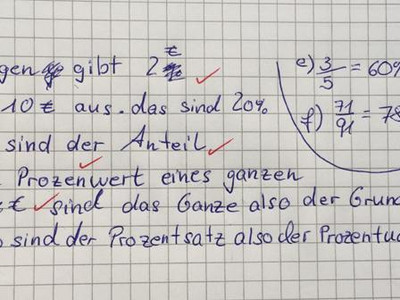 gen gibt 2 €
10 € aus. das sind 20%
sind der Anteil
Prozenwert eines ganzen
€ sind das Ganze also der Grun
sind der Prozentsatz also der Prozentua
e) 3/5 = 60%
f) 71/91 = 78